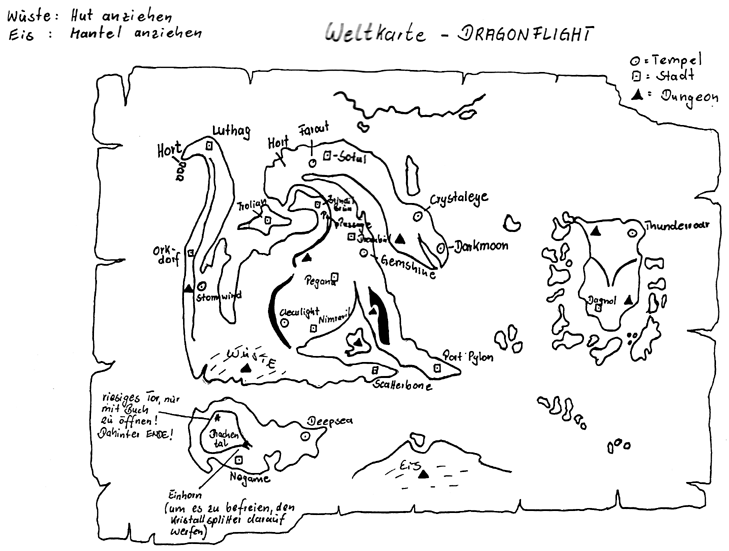 Wüste: Hut anziehen
Eis : Mantel anziehen
Weltkarte - DRAGONFLIGHT
= Tempel
= Stadt
= Dungeon
Luthag
Hort
Farout
Hort
Sotul
Crystaleye
Trolian
Passage
Gemshine
Darkmoon
Thunderroar
Ork-
dorf
Stormwind
Pegana
Clearlight
Nimravil
Dagnol
WÜSTE
Port Pylon
Scatterbone
riesiges Tor, nur
mit Buch
zu öffnen!
Dahinter ENDE!
Drachen
tal
Deepsea
Nogame
Eis
Einhorn
(um es zu befreien, den
Kristallsplitter darauf
werfen)